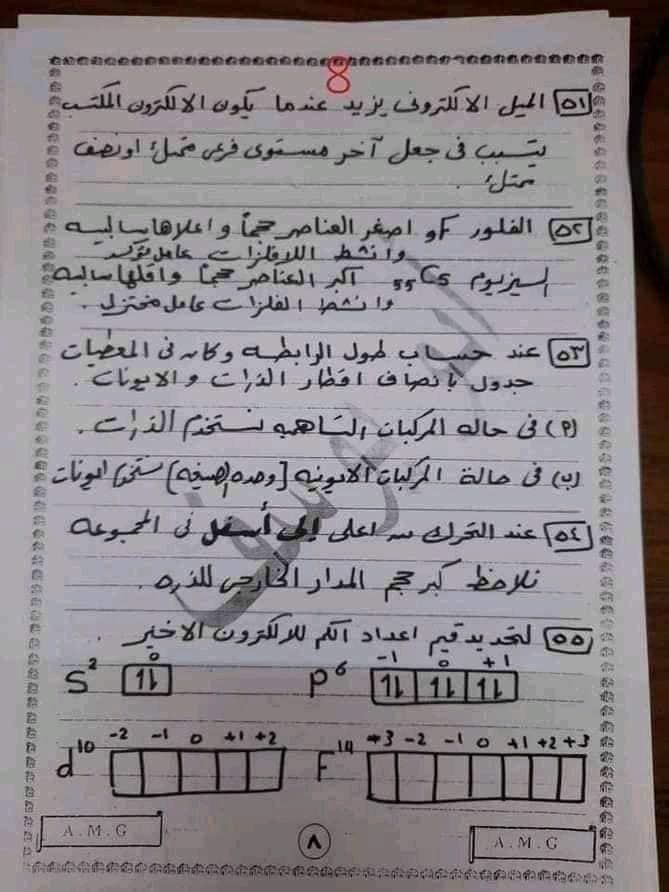 8
٥١ الميل الالكترونى يزيد عندما يكون الالكترون المكتسب
يتسبب فى جعل آخر مستوى فرعى ممتلئ او نصف
ممتلئ .
٥٢ الفلور F٩ اصغر العناصر حجماً واعلاها سالبيه
وانشط اللافلزات عامل مؤكسد
السيزيوم 55Cs أكبر العناصر حجماً واقلها سالبيه
وانشط الفلزات عامل مختزل .
٥٣ عند حساب طول الرابطه وكان فى المعطيات
جدول بإنصاف اقطار الذرات والايونات .
(٩) فى حاله المركبات التساهميه نستخدم الذرات .
(ب) فى حالة المركبات الايونيه [وحده الصيغه] نستخدم ايونات
٥٤ عند التحرك من اعلى إلى أسفل فى المجموعه
نلاحظ كبر حجم المدار الخارجى للذره .
٥٥ لتحديد قيم اعداد الكم للالكترون الاخير .
0 -1 0 +1
S2 1l P6 1l 1l 1l
-2 -1 0 +1 +2 -3 -2 -1 0 +1 +2 +3
d10 F14
A.M.G ٨ A.M.G